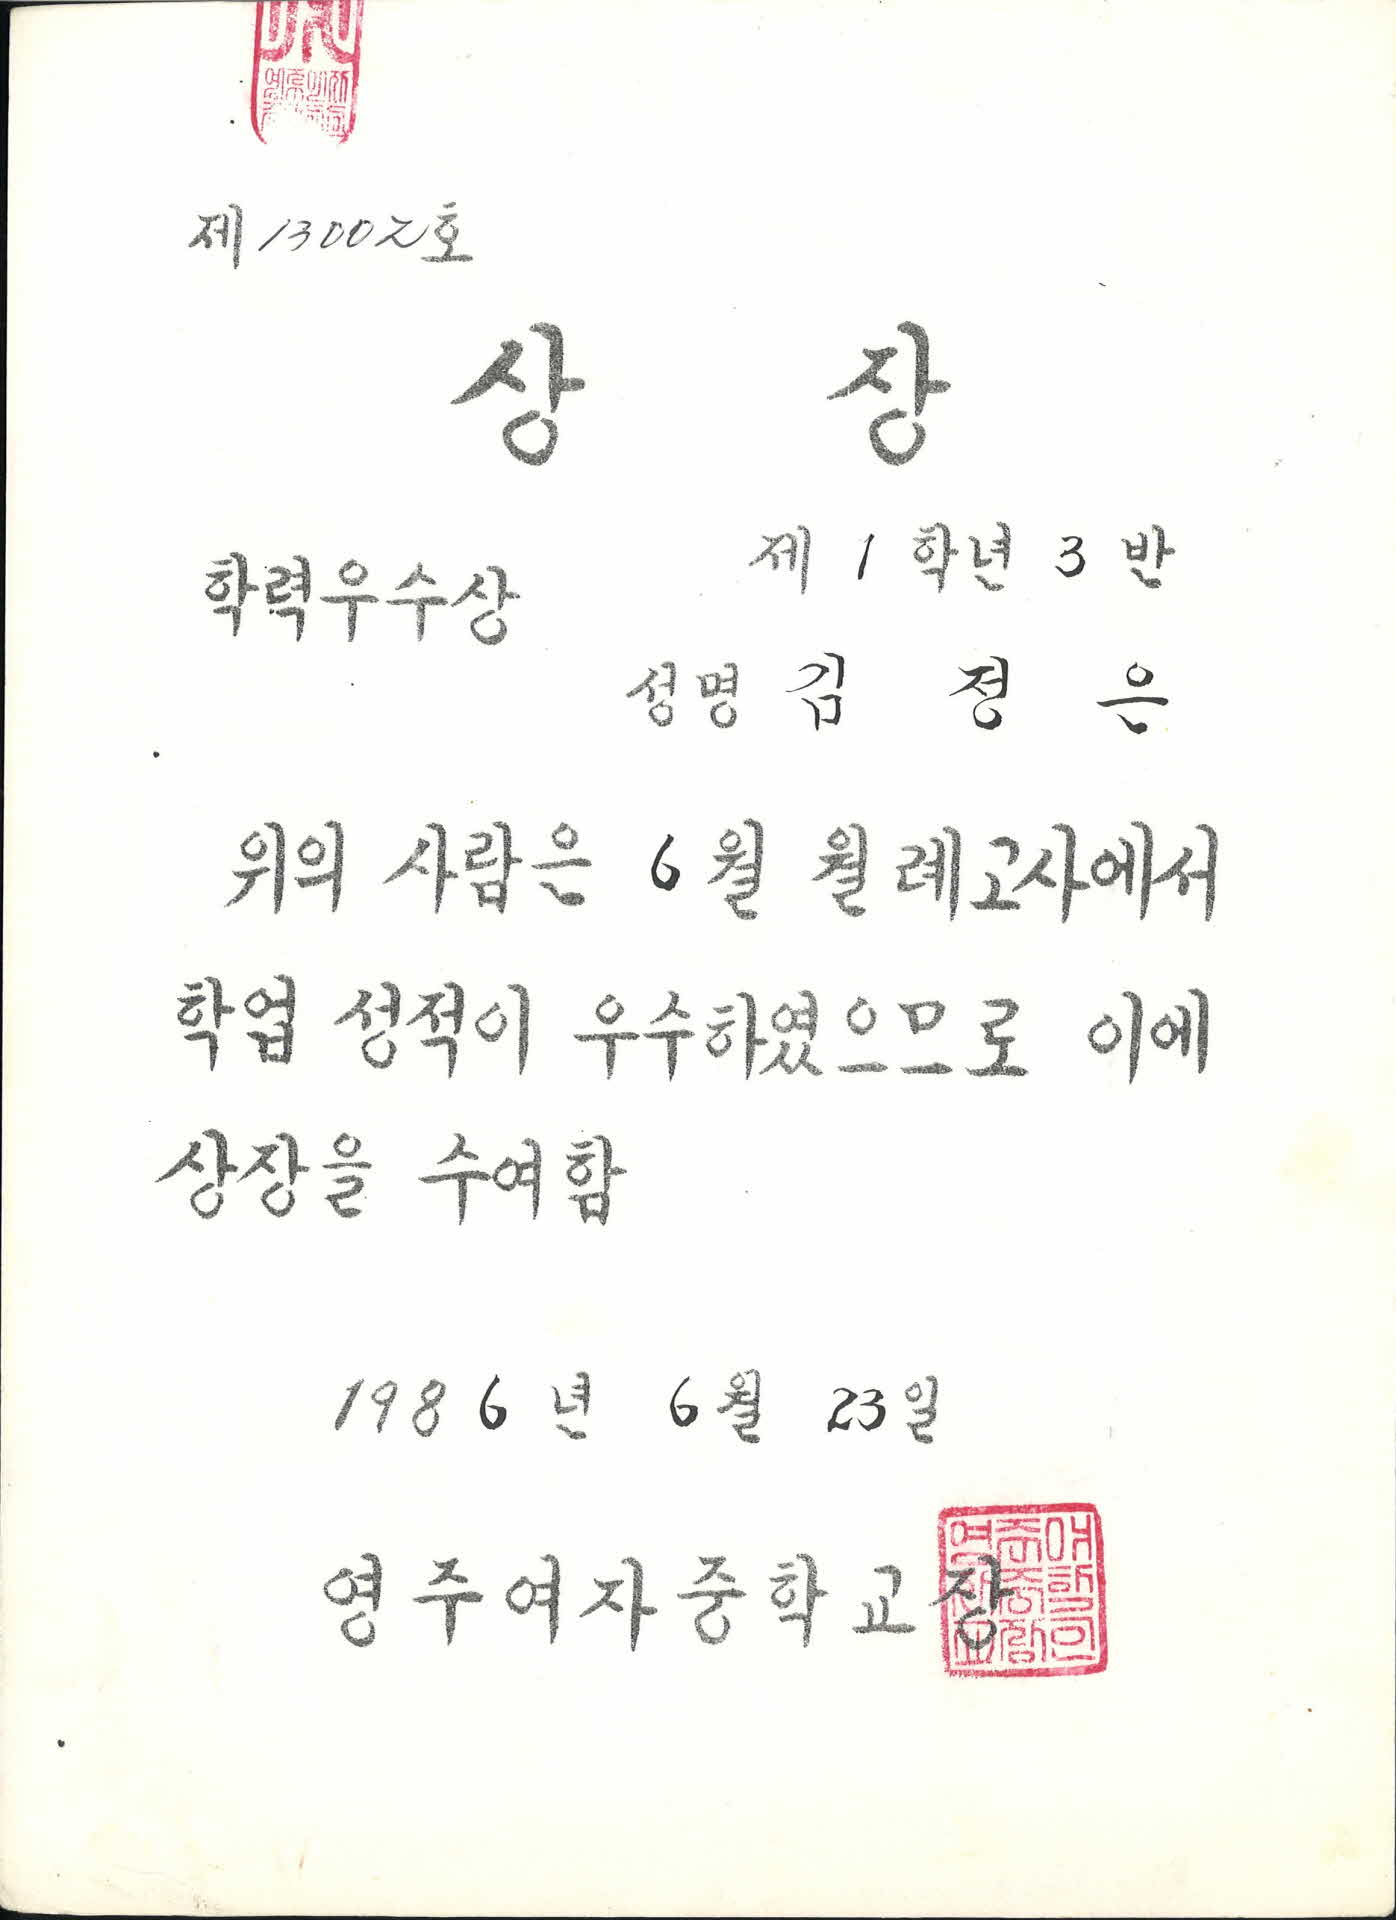 제 13002호
상 장
학력우수상
제 1 학년 3 반
성명 김 정 은
위의 사람은 6월 월례고사에서
학업 성적이 우수하였으므로 이에
상장을 수여함
1986년 6월 23일
영주여자중학교장